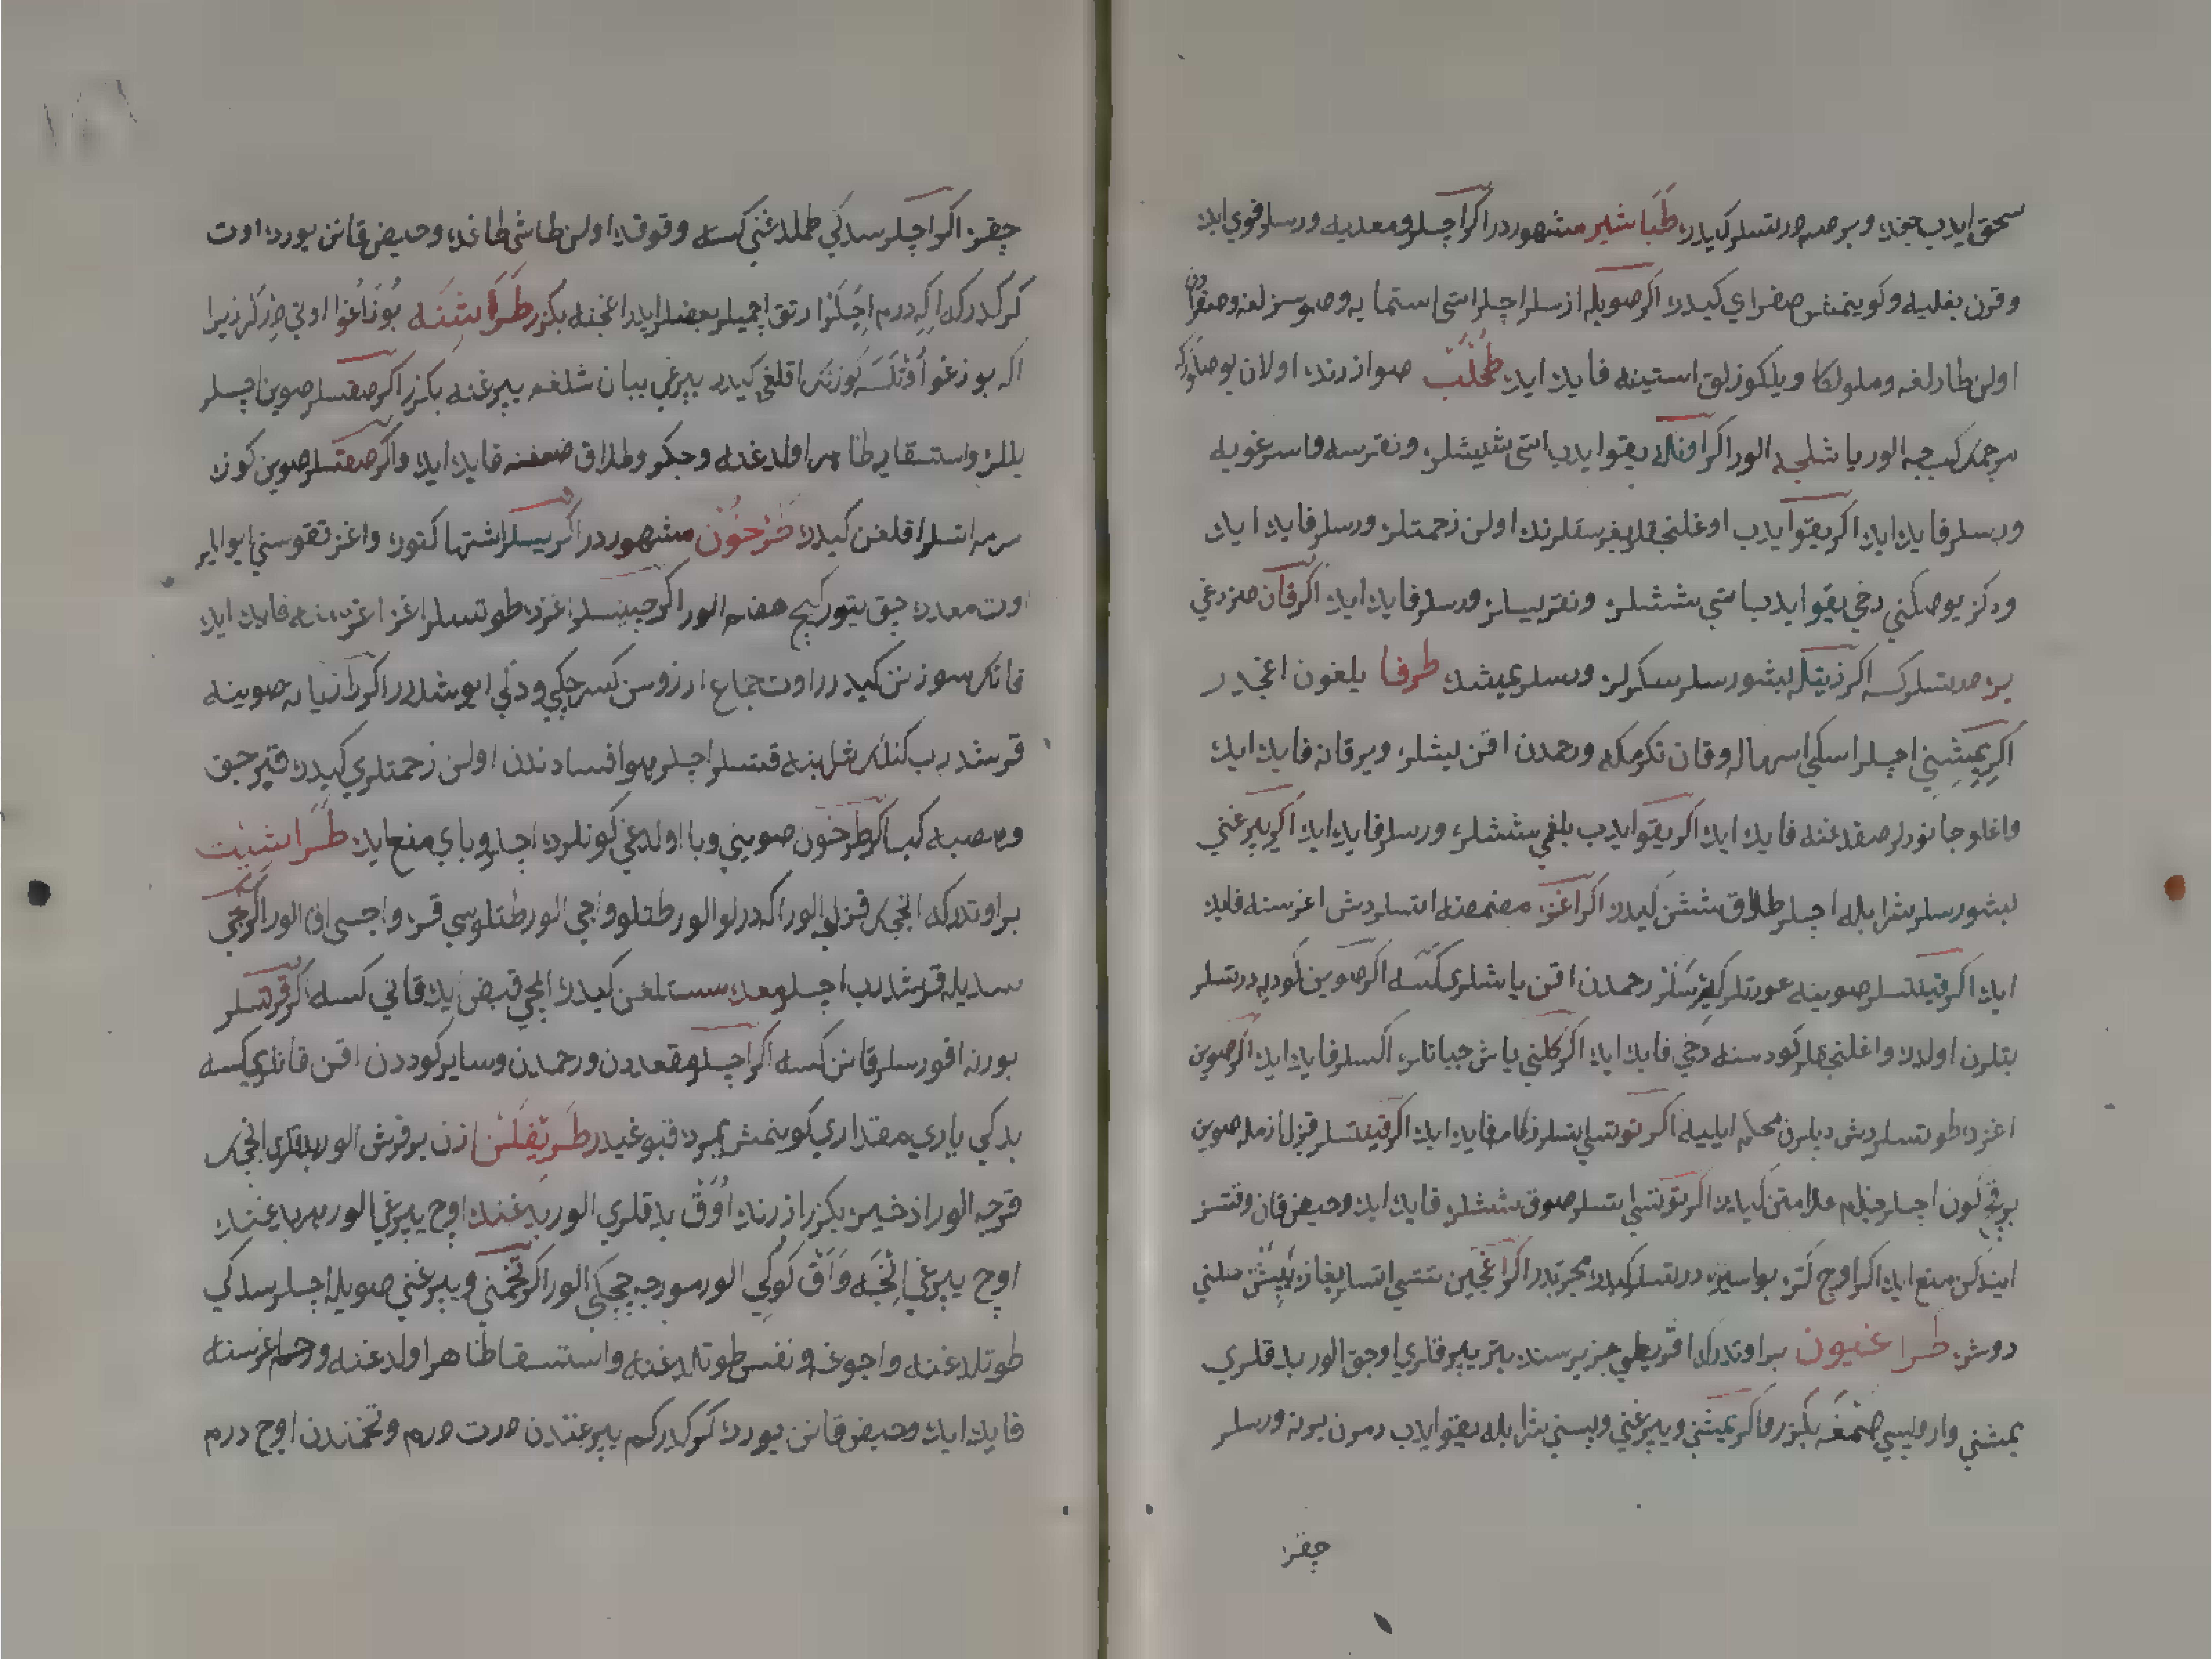 سحق ایدب جبنه و برصه دورتسلر کیدرر طَبَاشیر مشهوردر اکر اچلر و معدیه ورسلر قوی ایدر
وقرن بغلیه وکوینمش صفرای کیدرر اکر صویله ازسلر اچلر اسّی استمایه وصوسزلغه وصفرادن
اولن طارلغه وملولکا ویلکوزلق استینه فایده ایدر طُحْلُبْ صو ازرنده اولان یوصندر که
مرجمک کبی حبه الور یاشلجه الور اکر اونله یقو ایدب اسّی شیشلره ونقرسه وقاسرغویه
ورسلر فایده ایدر اکر یقو ایدب اوغلنجقلر بغرسقلرنده اولن زحمتلره ورسلر فایده ایدر
ودکز یوصننی دخی یقو ایدب اسّی ششلره ونقریسلره ورسلر فایده ایدر اکر قان صزدغی
یره دورتسلر کسه اکر زیتله بشورسلر سکرلره ورسلر یمیشده طرفا یلغون اغجیدر
اکر یَمِشِنی اچلر اسکی اسهاله وقان تکرمکه ورحمدن اقن یشلره ویرقانه فایده ایدر
واغلو جانودلر صقدغنه فایده ایدر اکر یقو ایدب بلغمی ششلره ورسلر فایده ایدر اکر یپرغنی
بشورسلر شرابله اچلر طلاق ششن کیدرر اکر اغزه مضمضه اتسلر دش اغرسنه فایده
ایدر اکر قینتسلر صوینه عورتلر کیرسلر رحمدن اقن یاشلری کسه اکر صوین کودیه درتسلر
بتلرن اولدرر واغلنجقلر کودسنه دخی فایده ایدر اکر کلنی یاش جباناره اکسلر فایده ایدر اکر صوین
اغزده طوتسلر دش دبلرن محکم ایلیه اکر توتسی اتسلر زکامه فایده ایدر اکر قینتسلر قزل ازمله صوین
برقچ کون اچلر جذام علامتن کیدرر اکر توتسی اتسلر صوق ششلره فایده ایدر وحیض قان ونتسز
ایندکن منع ایدر اکر اوچ کز بواسیره درتسلر کیدرر مجرتدر اکر اغجین تتسی اتسلر بغازه یپشمش سلنی
دوشره طراغیون بر اوتدرکه اقریطی جزیرسنده بتر یپرقلری اوجق الور بداقلری
یمشنی وار دلیسی صَمْغَه بکزر واکر یمشنی ویپرغنی وپسنی شرابله یقو ایدب دمرن یرنه ورسلر
چقره
چقره اکر اچلر سدکی طملدغنی کسه وقوقده اولن طاشی طاغده وحیض قانن یوردر اوت
کرکدرک اکه درم اِچَلَرْ ارتق اچمیلر بعضلر ایدر اغجنه بکزر طَرَاشَنَه بُوزَاغُو اوتی در کر زیرا
اکه بوزغو اُوتْلَسَه کوزنک اقلغی کیدر یپرغی یبان شلغم یپرغنه بکزر اکر صقسلر صوین اچلر
یللره واستسقایه ظاهر اولدغنه وجکر وطلاق ضعفنه فایده ایدر واکر صقتسلر صوین کوزه
سرمه اتسلر اقلغن کیدرر طَرْخُون مشهوردر اکر یسلر اشتها کتورر واغز قوقوسنی ایو ایلر
اوت معدده چق یتور کیچ هضم الور اکر چینسلر اغزده طوتسلر اغز اغرسنه فایده ایدر
قانک سوزنن کیدرر اوت جماع ارزوسن کسر چکی ودلی ایوشدرر اکر رازیانه صوینه
قرشدرب کنلک شرابنه قتسلر اچلر هوا فسادندن اولن زحمتلری کیدرر قیز جق
وحصبه کبی اکر طرخون صوینی وبا اولدغی کونلرده اچلر وبای منع ایدر طَرَاشِیْث
بر اوتدرکه انجیک قزلی الور اکه درلو الور طتلو واجی الور طتلوسی قزل واجسی اق الور اکر اجی
سدیله قرشدرب اچسلر معده سستلغن کیدرر انجی قبض ایدر قانی کسه اکر قرتسلر
بورنه اقورسلر قانن کسه اکر اچسلر مقعددن ورحمدن وسایر کوددن اقن قانلری کسه
بدکی یاری مقداری کوینمش یمرده قبوغیدر طَرِیْفُلُنْ ازن بر قرش الور بداقلری انجیک
قرجه الور اذخیره بکزر ازرنده اُوَقْ بداقلری الور بدغنده اوچ یپرغی الور هر بداغنده
اوچ یپرغی اِنْجَه وَاَقْ کُوکی الور مورجه چچکی الور اکر تخمنی ویپرغنی صویله اچلر سدکی
طوتلدغنه واجوغه ونفس طوتلدغنه واستسقا ظاهر اولدغنه ورحم اغرسنه
فایده ایدر وحیض قانن یوردر کرکدرکم یپرغندن درت درم وتخمندن اوچ درم